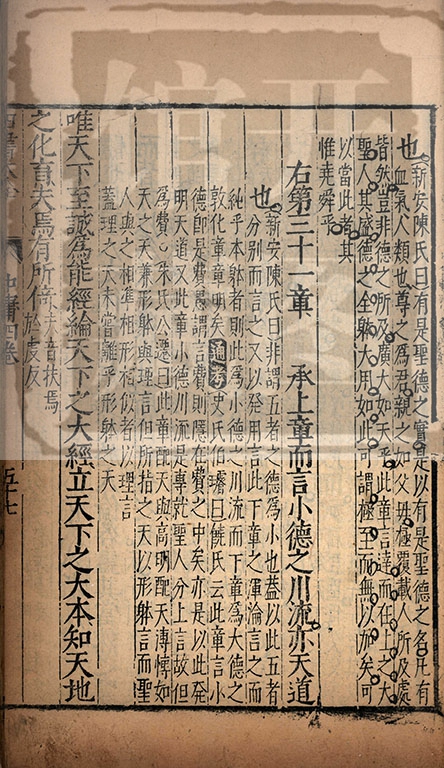 也 新安陳氏曰有是聖德之實是以有是聖德之名凡有
血氣人類也尊之爲君親之如父母極覆載人所及處
皆然豈非德之所及廣大如天乎此章言達而在上之大
聖人其盛德之全躰大用如此可謂極至而無以加矣可
以當此者其
惟堯舜乎
右第三十一章 承上章而言小德之川流亦天道
也 新安陳氏曰非謂五者之德爲小也蓋以此五者
分别而言之又以發用言此下章之渾淪言之而
純乎本躰者則此爲小德之川流而下章爲大德之
敦化章章明矣 通考 史氏伯璿曰饒氏云此章言小
德即是費愚謂言費則隱在費之中矣亦是以此發
明天道又此章小德川流是專就聖人分上言故但
爲費 朱氏公遷曰此章配天與高明配天溥愽如
天之天兼形躰與理言但所指之天以形躰言而聖
人與之相準相形相似者以理言
蓋理之天未嘗離乎形躰之天
唯天下至誠爲能經綸天下之大經立天下之大本知天地
之化育夫焉有所倚 夫音扶焉於虔反
中庸 卷 五十七